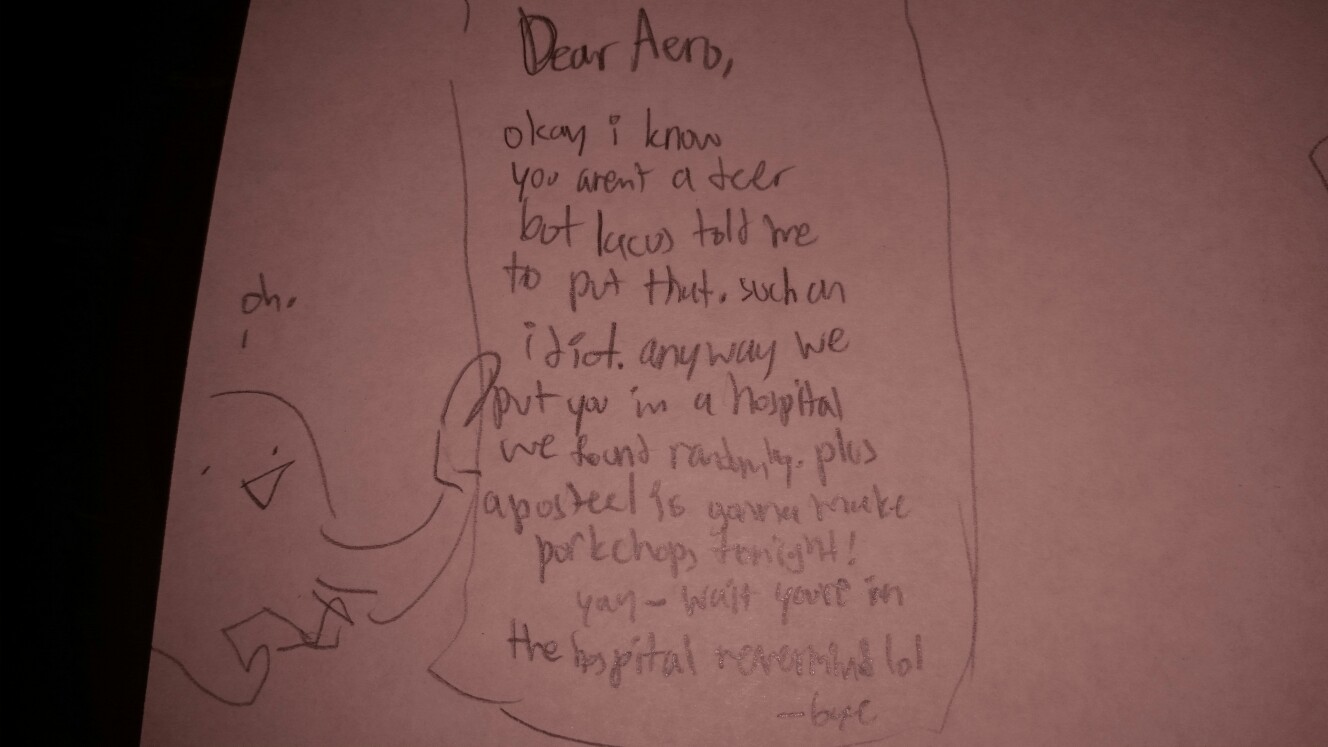 Dear Aero,
okay i know
you arent a deer
but lucus told me
to put that. such an
idiot. anyway we
put you in a hospital
we found randomly. plus
aposteel is ganna make
porkchops tonight!
yay - wait youre in
the hospital nevermind lol
oh.